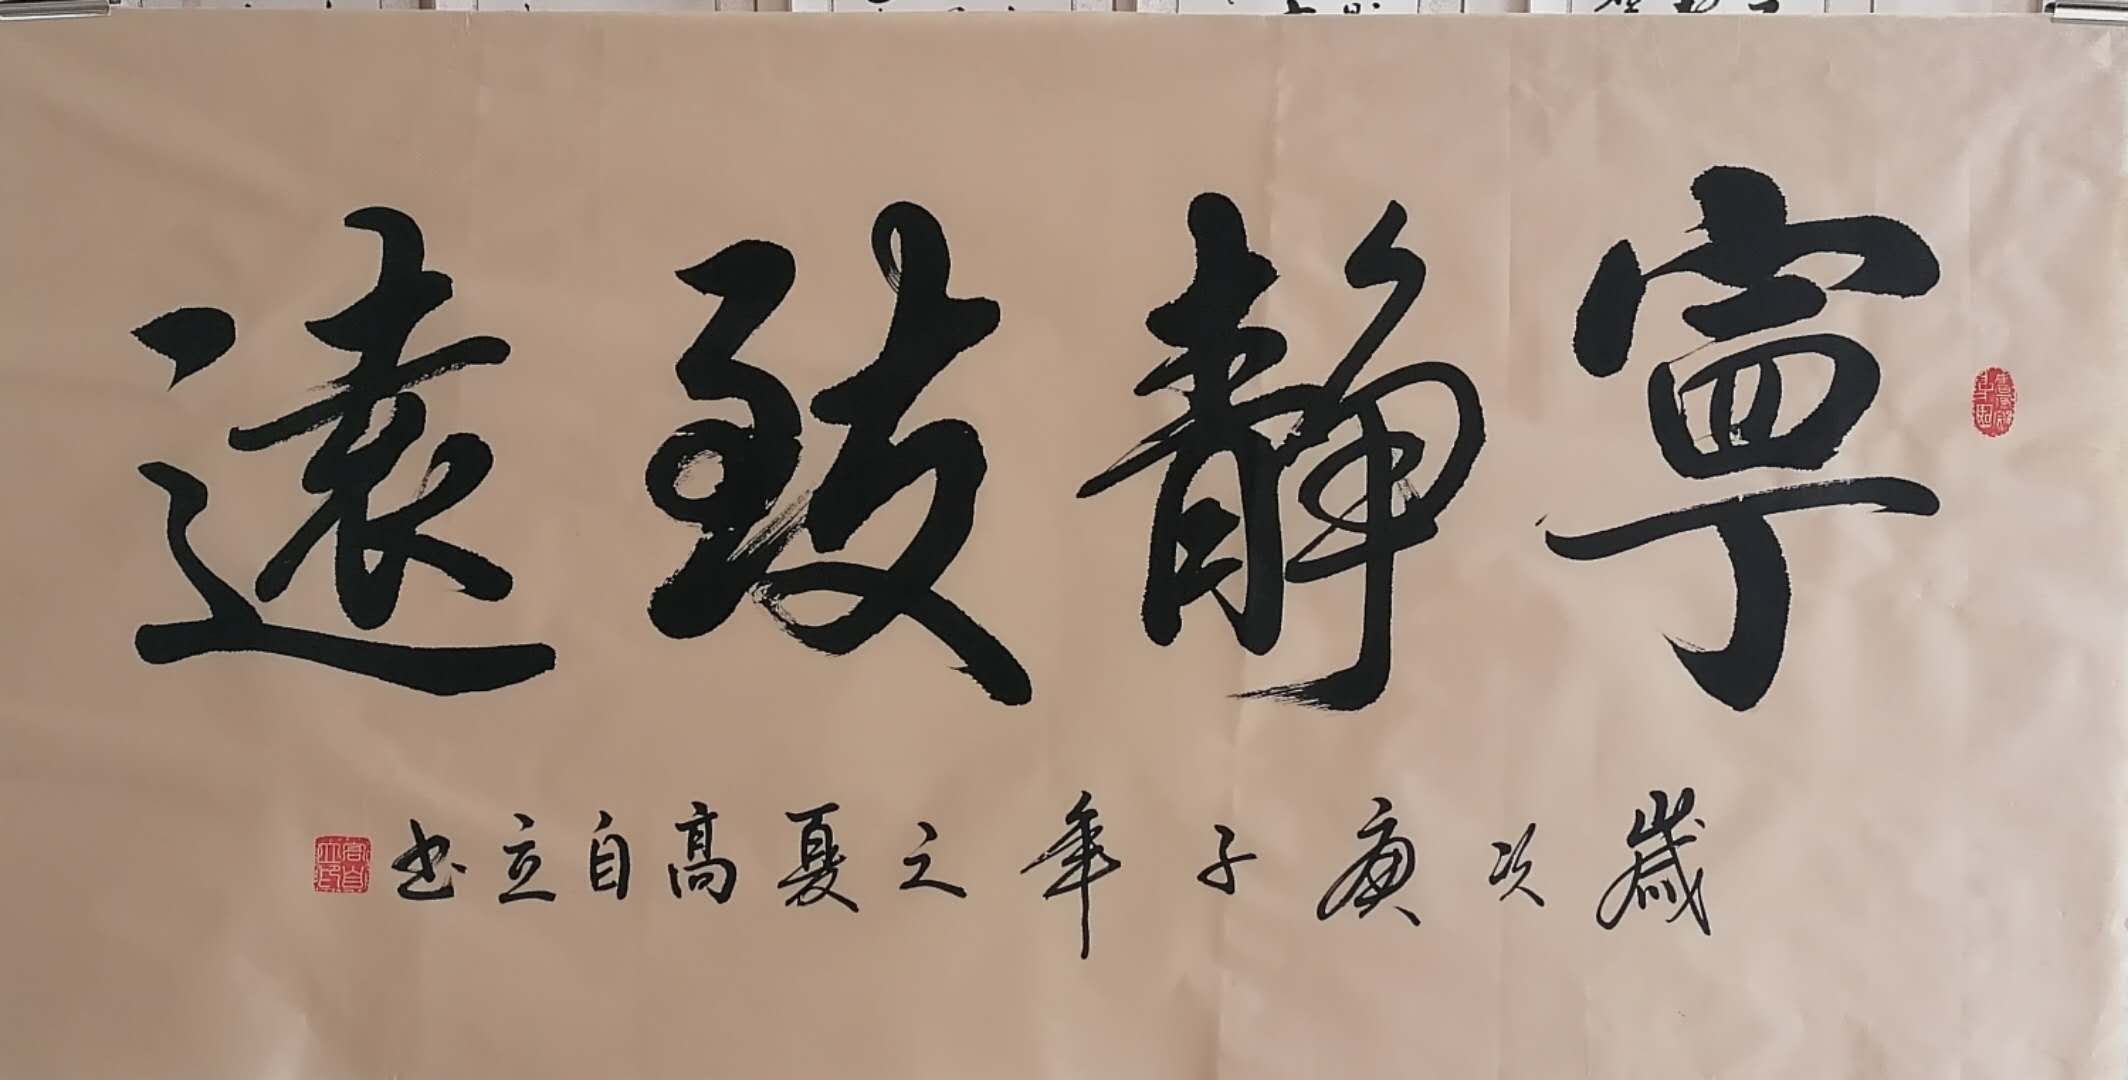 寧靜致遠
歲次庚子年之夏高自立书